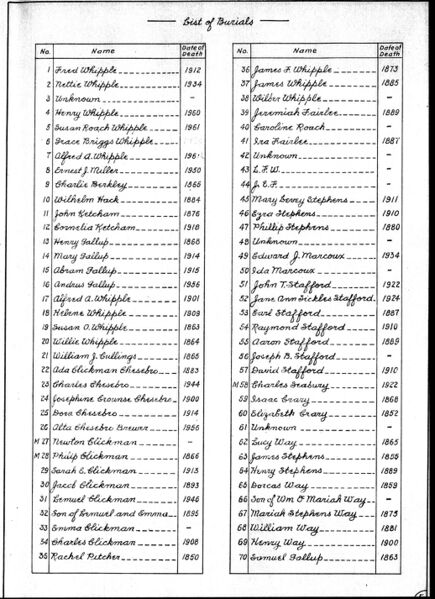 List of Burials
No. Name Date of Death
1 Fred Whipple 1912
2 Nettie Whipple 1934
3 Unknown -
4 Henry Whipple 1960
5 Susan Roach Whipple 1961
6 Grace Briggs Whipple -
7 Alfred A. Whipple 196
8 Ernest J. Miller 1950
9 Charlie Berkley 1865
10 Wilhelm Hack 1884
11 John Ketcham 1876
12 Cornelia Ketcham 1918
13 Henry Gallup 1868
14 Mary Gallup 1914
15 Abram Gallup 1915
16 Andrus Gallup 1956
17 Alfred A. Whipple 1901
18 Helene Whipple 1809
19 Susan O. Whipple 1863
20 Willie Whipple 1864
21 William J. Cullings 1865
22 Ada Clickman Chesebro 1883
23 Charles Chesebro 1944
24 Josephine Crounse Chesebro 1900
25 Dora Chesebro 1914
26 Alta Chesebro Brewer 1956
M 27 Newton Clickman -
M 28 Philip Clickman 1866
29 Sarah E. Clickman 1913
30 Jacob Clickman 1893
31 Lemuel Clickman 1946
32 Son of Lemuel and Emma 1895
33 Emma Clickman -
34 Charles Clickman 1908
35 Rachel Pitcher 1850
No. Name Date of Death
36 James F. Whipple 1873
37 James Whipple 1885
38 Wilber Whipple -
39 Jeremiah Fairlee 1889
40 Caroline Roach -
41 Ira Fairlee 1887
42 Unknown -
43 L. F. W. -
44 J. E. F. -
45 Mary Stephens 1911
46 Ezra Stephens 1910
47 Phillip Stephens 1880
48 Unknown -
49 Edward J. Marcoux 1934
50 Ida Marcoux -
51 John T. Stafford 1922
52 Jane Ann Sickles Stafford 1924
53 Earl Stafford 1887
54 Raymond Stafford 1910
55 Aaron Stafford 1889
56 Joseph B. Stafford -
57 David Stafford 1910
M 58 Charles Seabury 1922
59 Isaac Crary 1868
60 Elizabeth Crary 1852
61 Unknown -
62 Lucy Way 1865
63 James Stephens 1855
64 Henry Stephens 1889
65 Dorcas Way 1859
66 Son of Wm & Mariah Way -
67 Mariah Stephens Way 1875
68 William Way 1881
69 Henry Way 1900
70 Samuel Gallup 1863